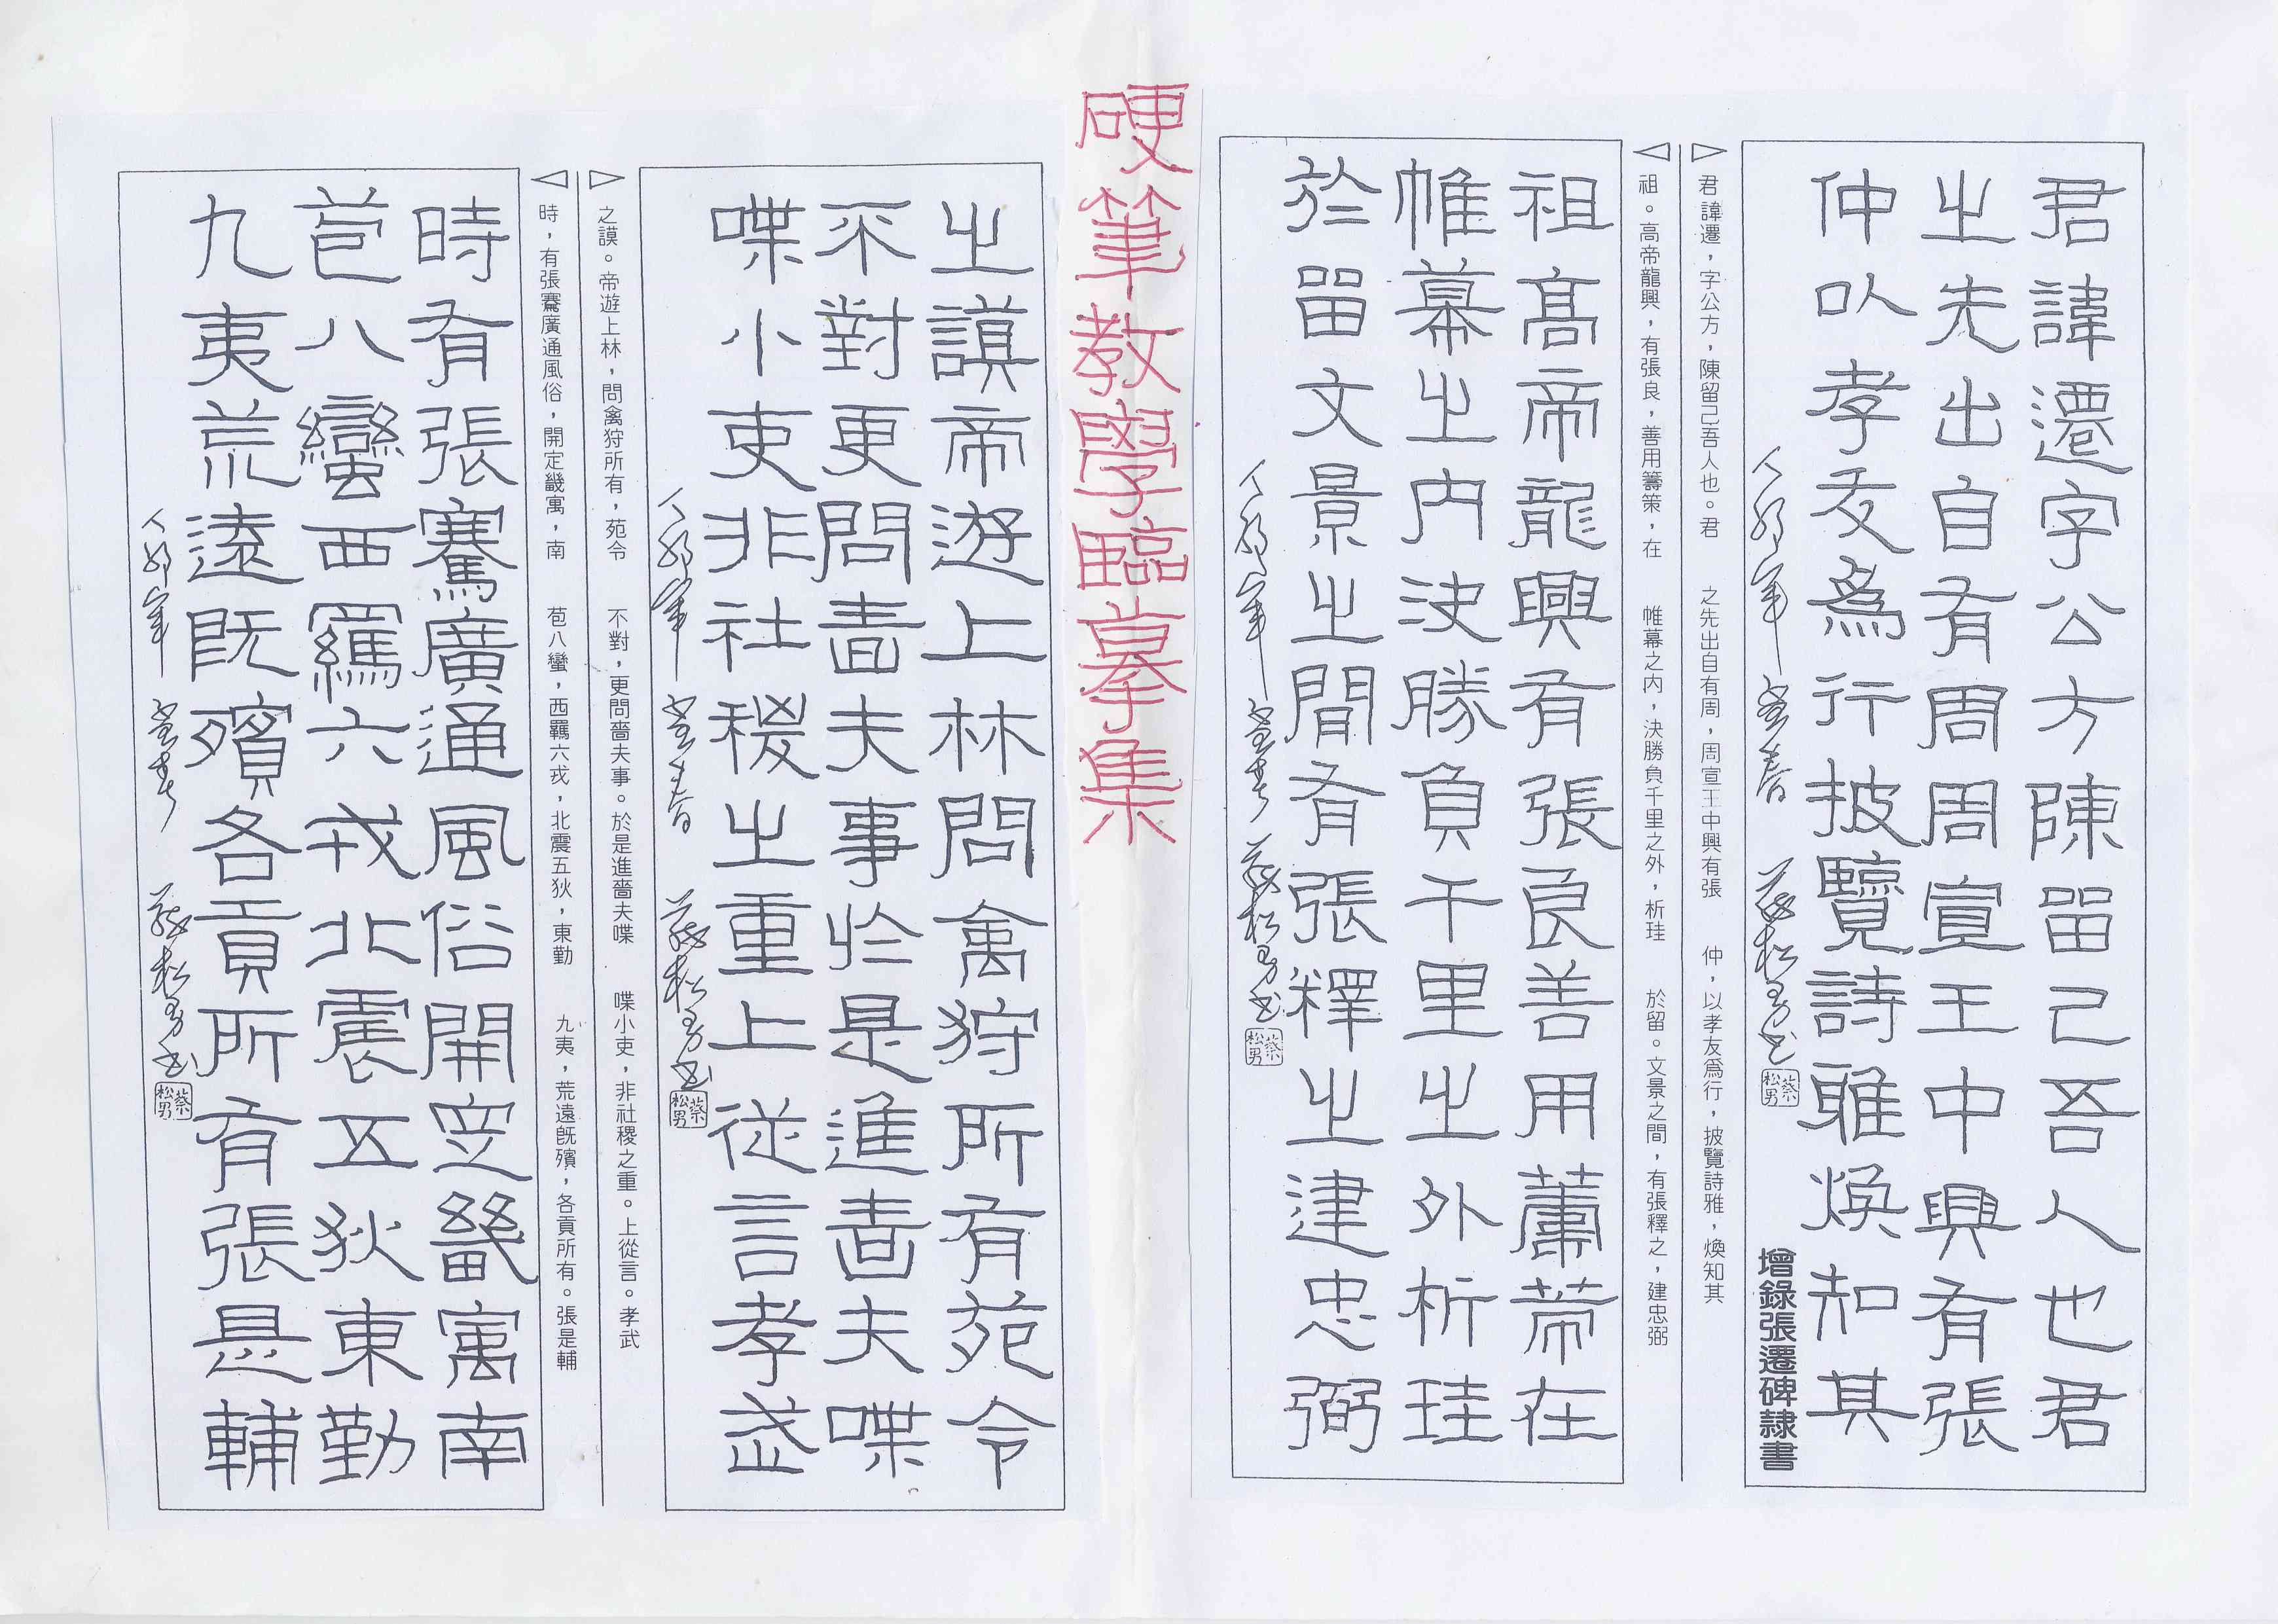 君諱遷字公方陳留己吾人也君
之先出自有周周宣王中興有張
仲以孝友為行披覽詩雅煥知其
蔡松男書
蔡松男
增錄張遷碑隸書
君諱遷，字公方，陳留己吾人也。君　之先出自有周，周宣王中興有張　仲，以孝友爲行，披覽詩雅，煥知其
祖。高帝龍興，有張良，善用籌策，在　帷幕之內，決勝負千里之外，析珪　於留。文景之間，有張釋之，建忠弼
祖高帝龍興有張良善用籌策在
帷幕之內決勝負千里之外析珪
於留文景之間有張釋之建忠弼
蔡松男書
蔡松男
硬筆教學臨摹集
之謨帝遊上林問禽狩所有苑令
不對更問嗇夫事於是進嗇夫喋
喋小吏非社稷之重上從言孝武
蔡松男書
蔡松男
之謨。帝遊上林，問禽狩所有，苑令　不對，更問嗇夫事。於是進嗇夫喋　喋小吏，非社稷之重。上從言。孝武
時，有張騫廣通風俗，開定畿寓，南　苞八蠻，西羈六戎，北震五狄，東勤　九夷，荒遠既殯，各貢所有。張是輔
時有張騫廣通風俗開定畿寓南
苞八蠻西羈六戎北震五狄東勤
九夷荒遠既殯各貢所有張是輔
蔡松男書
蔡松男